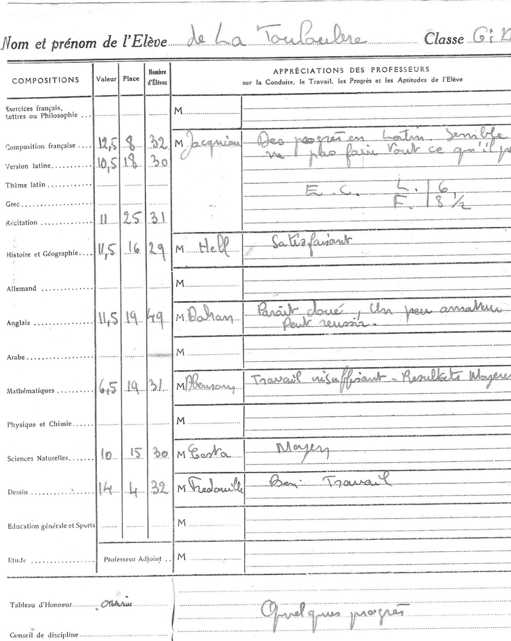 Nom et prénom de l'Elève de La Touloubre Classe G:
COMPOSITIONS Valeur Place Nombre d'Elèves APPRÉCIATIONS DES PROFESSEURS
sur la Conduite, le Travail, les Progrès et les Aptitudes de l'Elève
Exercices français,
Lettres ou Philosophie M
Composition française 12,5 8 32 M Des progrès en Latin. Semble
Version latine 10,5 18 30 ne plus faire tout ce qu'il
Thème latin E. C. L. 6
Grec F. 8 1/2
Récitation 11 25 31
Histoire et Géographie 11,5 16 29 M Hell Satisfaisant
Allemand M
Anglais 11,5 19 49 M Dahan Paraît doué, Un peu amateur
Peut réussir.
Arabe M
Mathématiques 6,5 19 31 M Travail insuffisant - Résultats Moyens
Physique et Chimie M
Sciences Naturelles 10 15 30 M Costa Moyen
Dessin 14 4 32 M Fredouille Bon Travail
Education générale et Sports M
Etude Professeur Adjoint M
Tableau d'Honneur
Quelques progrès
Conseil de discipline